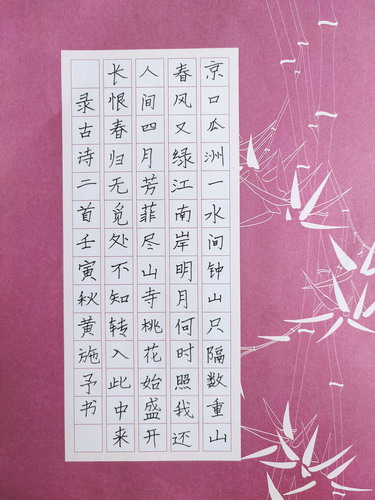 京口瓜洲一水间钟山只隔数重山
春风又绿江南岸明月何时照我还
人间四月芳菲尽山寺桃花始盛开
长恨春归无觅处不知转入此中来
录古诗二首壬寅秋黄施予书